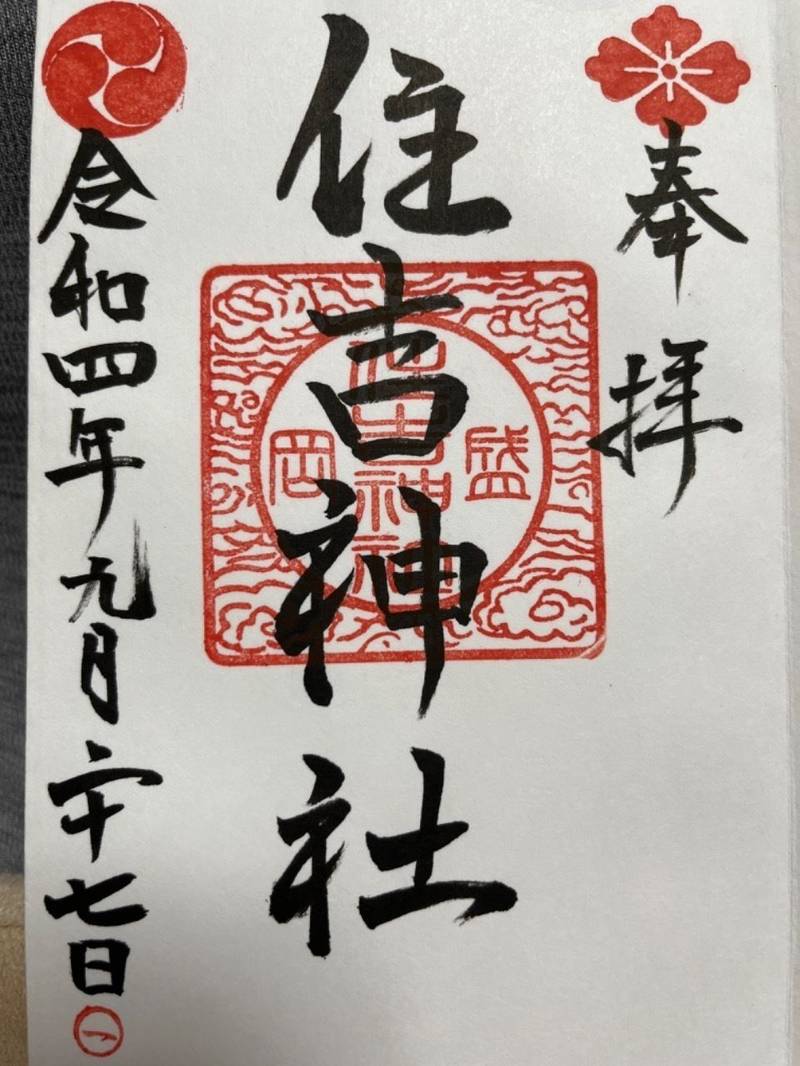 奉拝
住吉神社
盛岡
住吉神社
令和四年九月二十七日